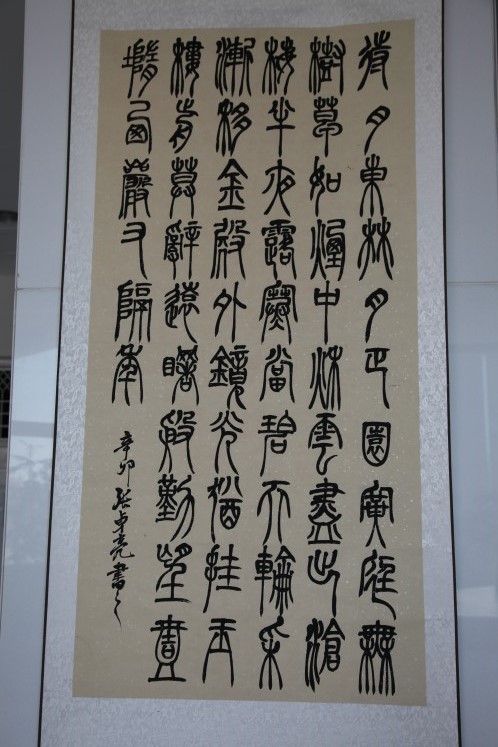 待月東林月正圓廣庭無
樹草如煙中秋雲盡出滄
海半夜露寒當碧天輪彩
漸移金殿外鏡光猶挂玉
樓前莫辭達曙殷勤望壹
墮西巖又隔年
辛卯張卓亮書之